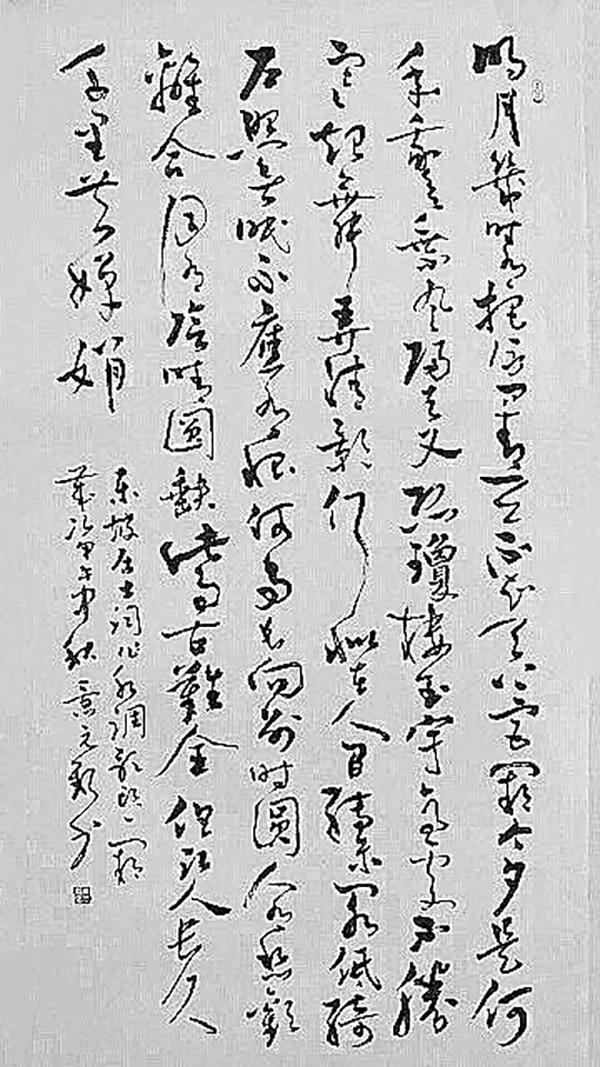 明月幾時有把酒問青天不知天上宮闕今夕是何
年我欲乘風歸去又恐瓊樓玉宇高處不勝
寒起舞弄清影何似在人間轉朱閣低綺
戶照無眠不應有恨何事長向別時圓人有悲歡
離合月有陰晴圓缺此事古難全但願人長久
千里共嬋娟
東坡居士詞作水調歌頭一闋
甲午中秋 書